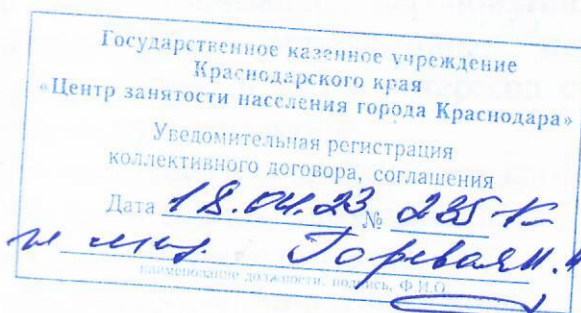 Государственное казенное учреждение
Краснодарского края
«Центр занятости населения города Краснодара»
Уведомительная регистрация
коллективного договора, соглашения
Дата 18.04.23 № 235-к
наименование должности, подпись, Ф.И.О.